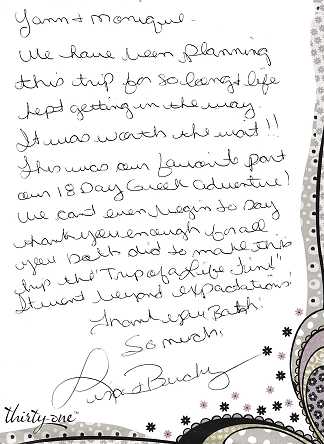 Yann + Monique -
We have been planning
this trip for so long + life
kept getting in the way.
It was worth the wait!!
This was our favorite part
our 18 Day Greek adventure!
We can't even begin to say
thank you enough for all
you both did to make this
trip the "Trip of a Life Time"
It went beyond expectations!
Thank you Both
So much.
thirty-one